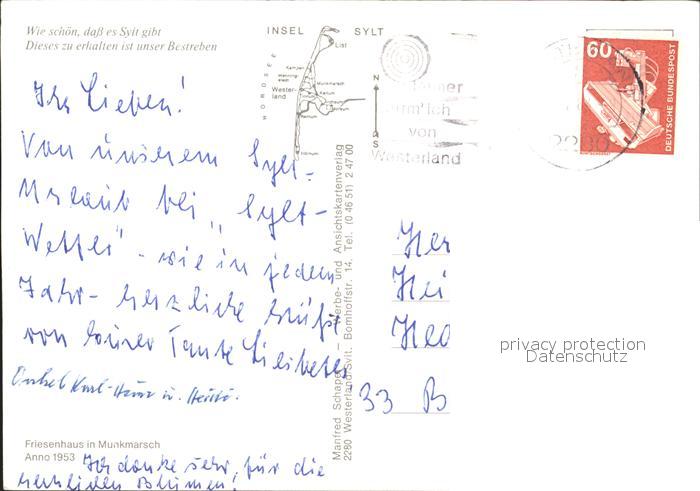 Wie schön, daß es Sylt gibt
Dieses zu erhalten ist unser Bestreben
INSEL SYLT
NORDSEE
List
Kampen
Munkmarsch
Wester-
land
Keitum
N
S
von
Westerland
2280
60
DEUTSCHE BUNDESPOST
Ihr Lieben!
Von unserem Sylt-
Urlaub bei „Sylt-
Wetter" - wie in jedem
Jahr - herzliche Grüße
von Eurer Tante Liesbeth
Onkel Karl-Heinz u.
Ich danke sehr, für die
herzlichen Blumen!
Friesenhaus in Munkmarsch
Anno 1953
Manfred Schapp — Werbe- und Ansichtskartenverlag
2280 Westerland/Sylt. Bomhoffstr. 14. Tel. (0 46 51) 2 47 00
Her
Hei
33 B
privacy protection
Datenschutz